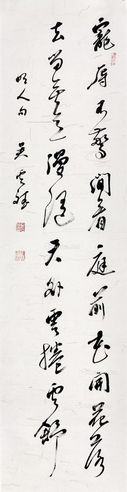 寵辱不驚閒看庭前花開花落
去留無意漫隨天外雲捲雲舒
明人句